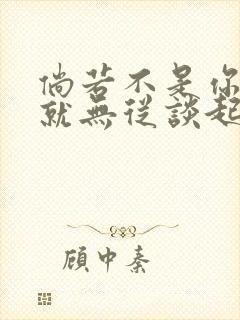 倘若不是你
就無從談起
顧中秦